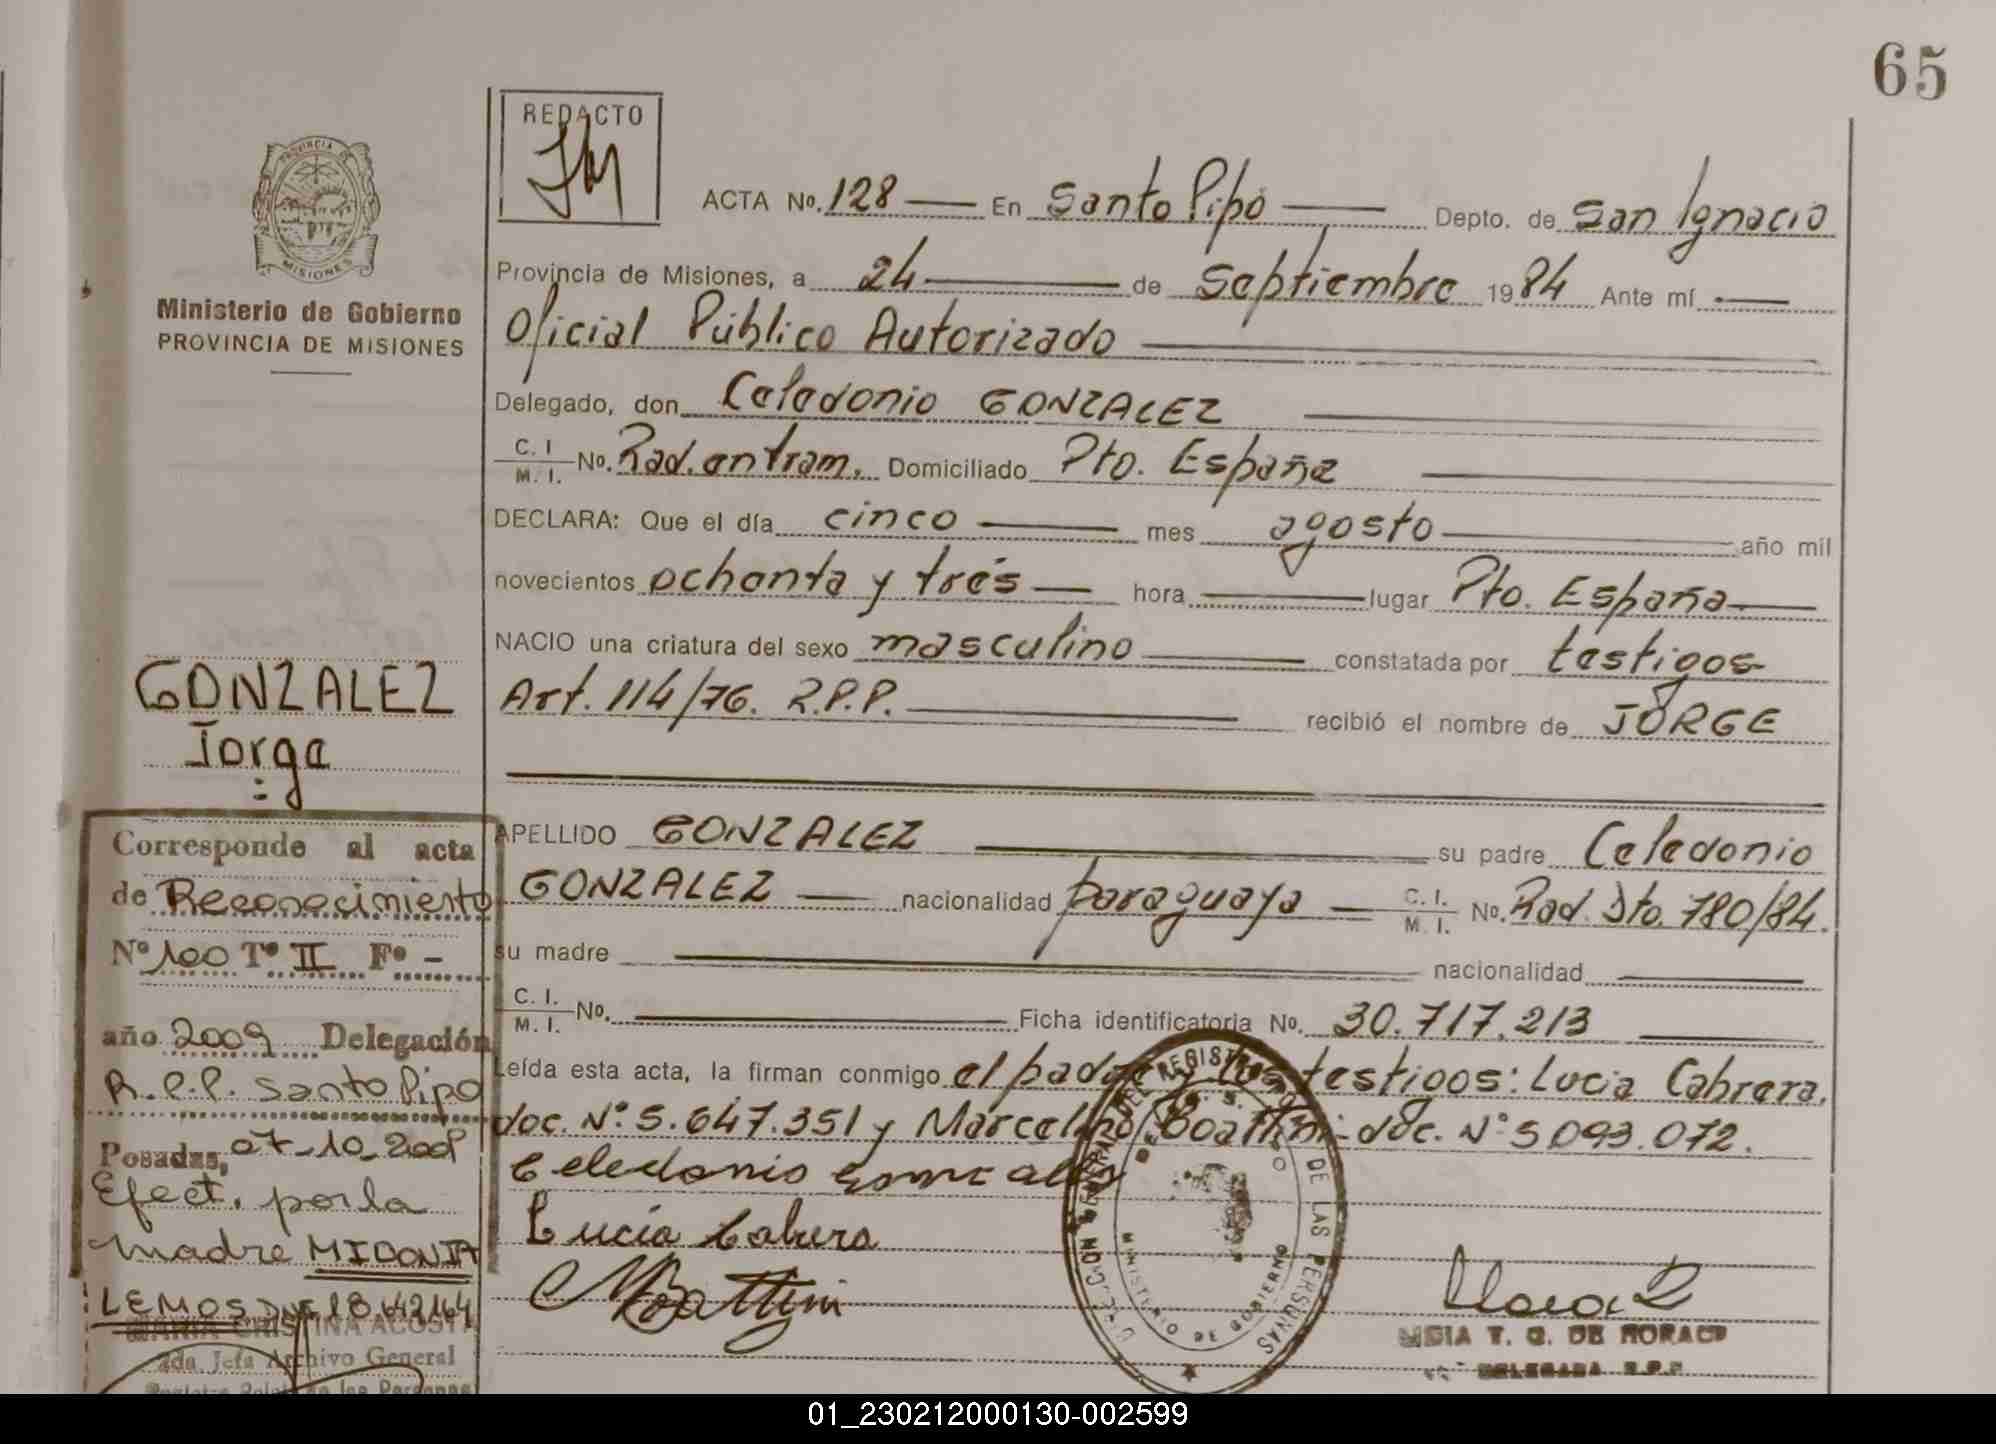 65
REDACTO
PROVINCIA DE
MISIONES
Ministerio de Gobierno
PROVINCIA DE MISIONES
ACTA No. 128 — En Santo Pipó — Depto. de San Ignacio
Provincia de Misiones, a 24 — de Septiembre 1984 Ante mí —
Oficial Público Autorizado
Delegado, don Celedonio GONZALEZ
C. I. / M. I. No. Rad. en tram. Domiciliado Pto. España
DECLARA: Que el día cinco — mes agosto — año mil
novecientos ochenta y tres — hora — lugar Pto. España —
NACIO una criatura del sexo masculino — constatada por testigos
Art. 114/76. R.P.P. — recibió el nombre de JORGE
APELLIDO GONZALEZ — su padre Celedonio
GONZALEZ — nacionalidad paraguaya — C. I. / M. I. No. Rad. Dto. 780/84.
su madre — nacionalidad —
C. I. / M. I. No. — Ficha identificatoria No. 30.717.213 —
Leída esta acta, la firman conmigo el padre y los testigos: Lucia Cabrera,
doc. Nº 5.647.351 y Marcelino Boattini - doc. Nº 5.093.072.
Celedonio Gonzales
Lucía Cabrera
MBoattini
DIRECCION GENERAL DEL REGISTRO DE LAS PERSONAS
MINISTERIO DE GOBIERNO
T. G. DE MORACO
DELEGADA R.P.P.
GONZALEZ
Jorge
Corresponde al acta
de Reconocimiento
Nº 100 Tº II Fº -
año 2009 Delegación
R.P.P. Santo Pipó
Posadas, 07-10-2009
Efect. por la
madre MIDONIA
LEMOS DNI 18.642.164
MARIA CRISTINA ACOSTA
2da Jefa Archivo General
Registro Pcial. de las Personas
01_230212000130-002599